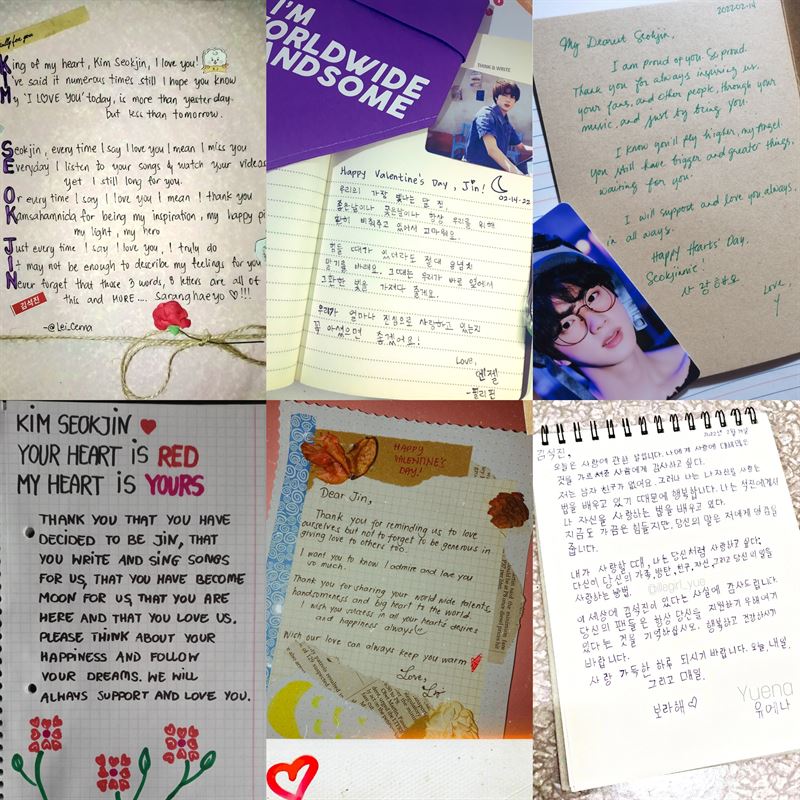 ally love you
King of my heart, Kim Seokjin, I love you!
I've said it numerous times still I hope you know
My 'I LOVE YOU' today, is more than yesterday.
but less than tomorrow.
Seokjin, every time I say I love you I mean I miss you
Everyday I listen to your songs & watch your videos
yet I still long for you.
Or every time I say I love you I mean I thank you
Kamsahamnida for being my inspiration, my happy pi
my light, my hero
Just every time I say I love you, I truly do
It may not be enough to describe my feelings for you
Never forget that those 3 words, 8 letters are all of
this and MORE.... saranghaeyo ♡!!!
김석진
-@Lei_Cema
I'M
WORLDWIDE
HANDSOME
THINK & WRITE
Happy Valentine's Day, Jin!
02-14-22
우리의 가장 빛나는 달 진,
좋은날이나 궂은날이나 항상 우리를 위해
환히 비춰주고 있어서 고마워요.
힘들 때가 있더라도 절대 용기를 잃지
말기를 바래요. 그때는 우리가 바로 옆에서
그랬던 빛을 가져다 줄게요.
우리가 얼마나 진심으로 사랑하고 있는지
꼭 아셨으면 좋겠어요!
Love,
엔젤
-필리핀
2022-02-14
My Dearest Seokjin,
I am proud of you. So proud.
Thank you for always inspiring us,
your fans, and other people, through your
music, and just by being you.
I know you'll fly higher, my Angel.
You still have bigger and greater things,
waiting for you.
I will support and love you always,
in all ways.
Happy Hearts' Day,
Seokjinnie!
사랑해요
Love,
Y
KIM SEOKJIN ♥
YOUR HEART IS RED
MY HEART IS YOURS
THANK YOU THAT YOU HAVE
DECIDED TO BE JIN, THAT
YOU WRITE AND SING SONGS
FOR US, THAT YOU HAVE BECOME
MOON FOR US, THAT YOU ARE
HERE AND THAT YOU LOVE US.
PLEASE THINK ABOUT YOUR
HAPPINESS AND FOLLOW
YOUR DREAMS. WE WILL
ALWAYS SUPPORT AND LOVE YOU.
HAPPY
VALENTINE'S
DAY!
Dear Jin,
Thank you for reminding us to love
ourselves but not to forget to be generous in
giving love to others too.
I want you to know I admire and love you
so much.
Thank you for sharing your world wide talents,
handsomeness and big heart to the world.
I wish you success in all your hearts desires
and happiness always!
Wish our love can always keep you warm
Love,
김석진,
오늘은 사랑에 관한 날입니다. 나에게 사랑에 대해 많은
것을 가르쳐준 사람에게 감사하고 싶다.
저는 남자 친구가 없어요. 그러나 나는 나 자신을 사랑하는
법을 배우고 있기 때문에 행복합니다. 나는 석진에게서
나 자신을 사랑하는 방법을 배우고 있다.
지금도 가끔은 힘들지만, 당신의 말은 저에게 영감을
줍니다.
내가 사랑할 때, 나는 당신처럼 사랑하고 싶다;
당신이 당신의 가족, 방탄, 친구, 자신, 그리고 당신의 일을
사랑하는 방법.
@illegrl_yue
이 세상에 김석진이 있다는 사실에 감사드립니다.
당신의 팬들은 항상 당신을 지원하기 위해 여기
있다는 것을 기억하십시오. 행복하고 건강하시기
바랍니다.
사랑 가득한 하루 되시기 바랍니다. 오늘, 내일,
그리고 매일.
보라해 ♡
Yuena
유에나